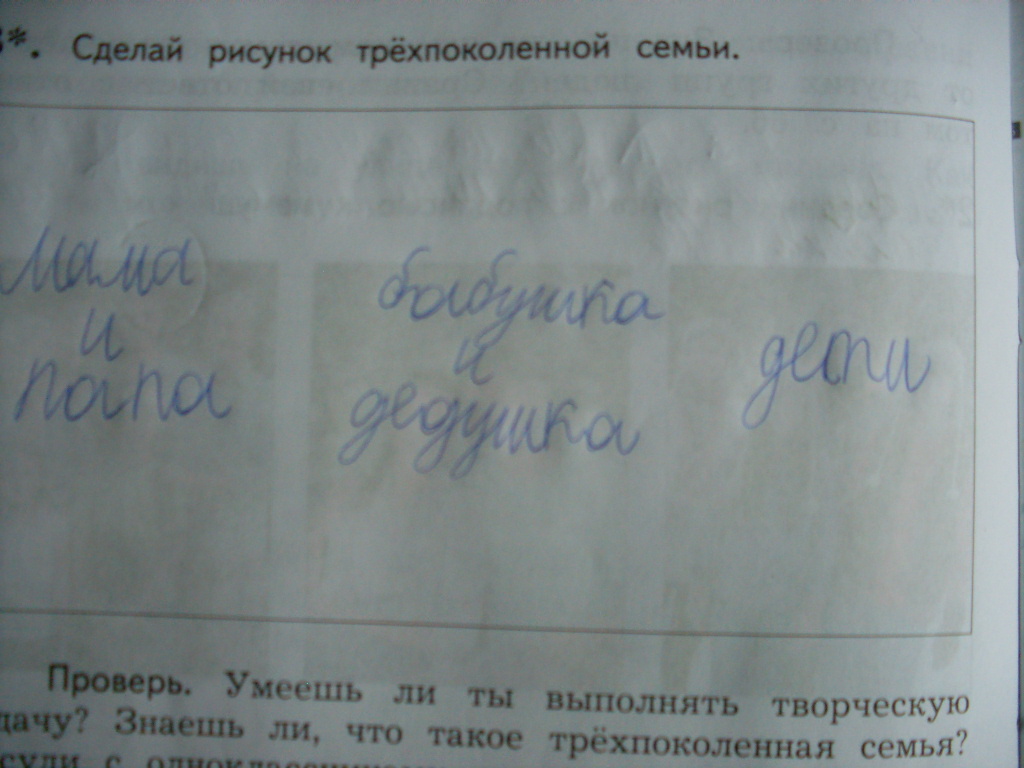 3*. Сделай рисунок трёхпоколенной семьи.
мама
и
папа
бабушка
и
дедушка
дети
Проверь. Умеешь ли ты выполнять творческую
дачу? Знаешь ли, что такое трёхпоколенная семья?